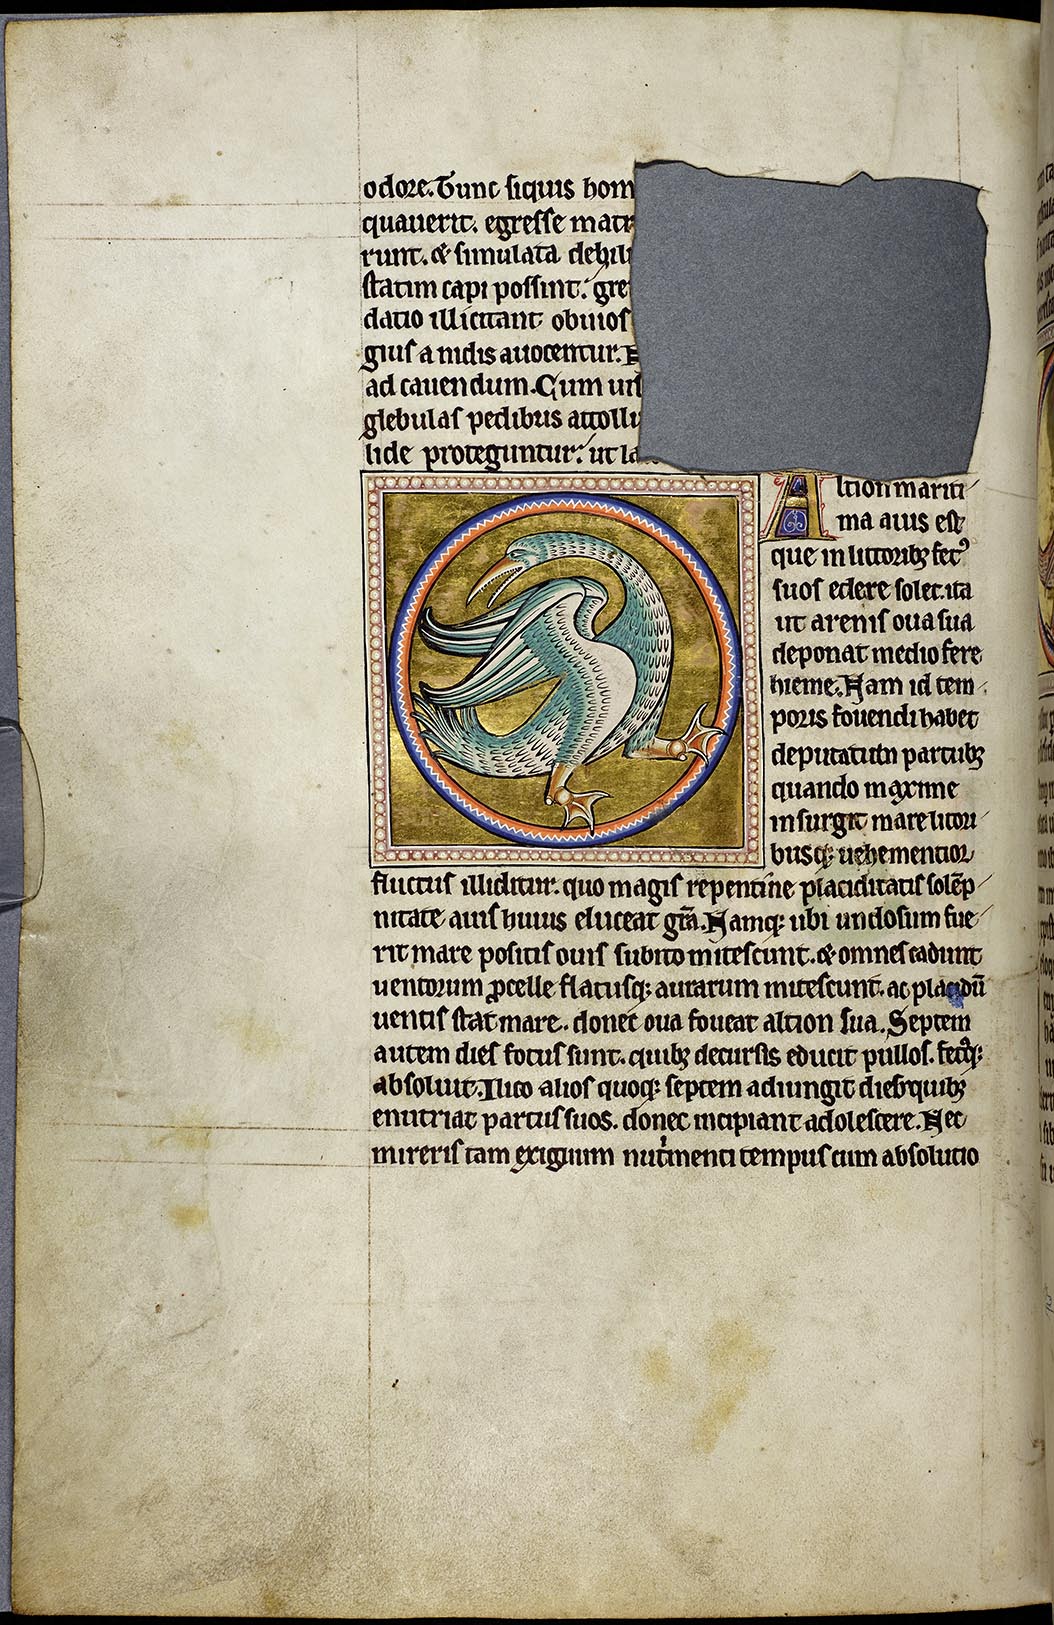 odore. Tunc siquis hom
quauerit. egresse matr
runt. & simulata debili
statim capi possint. gre
datio illicitant obuios
gius a nidis auocentur.
ad cauendum. Cum uis
glebulas pedibus attollu
lide proteguntur. ut la
Altion mariti
ma auis est
que in littoribꝫ fetꝰ
suos edere solet. ita
ut arenis oua sua
deponat medio fere
hieme. Nam id tem
poris fouendi habet
deputatum partubꝫ
quando maxime
insurgit mare litori
busqꝫ uehementior
fluctus illiditur. quo magis repentine placiditatis solēp
nitate auis huius eluceat gr̄a. Namqꝫ ubi undosum fue
rit mare positis ouis subito mitescunt. & omnes cadunt
uentorum ꝓcelle flatusqꝫ aurarum mitescunt. ac placidū
uentis stat mare. donec oua foueat altion sua. Septem
autem dies fotus sunt. quibꝫ decursis educit pullos. fetꝰqꝫ
absoluit. Ilico alios quoqꝫ septem adiungit dies quibꝫ
enutriat partus suos. donec incipiant adolescere. Nec
mireris tam exiguum nutͥmenti tempus cum absolutio